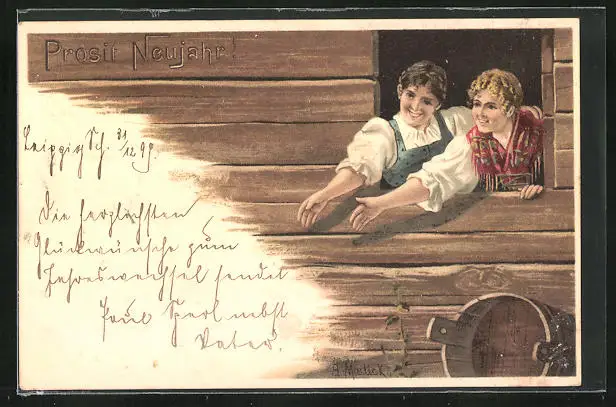 Prosit Neujahr!
Leipzig Sch. 31/12 99.
Die herzlichsten
Glückwünsche zum
Jahreswechsel sendet
Paul Sperl nebst
Vater.
A. Mailick